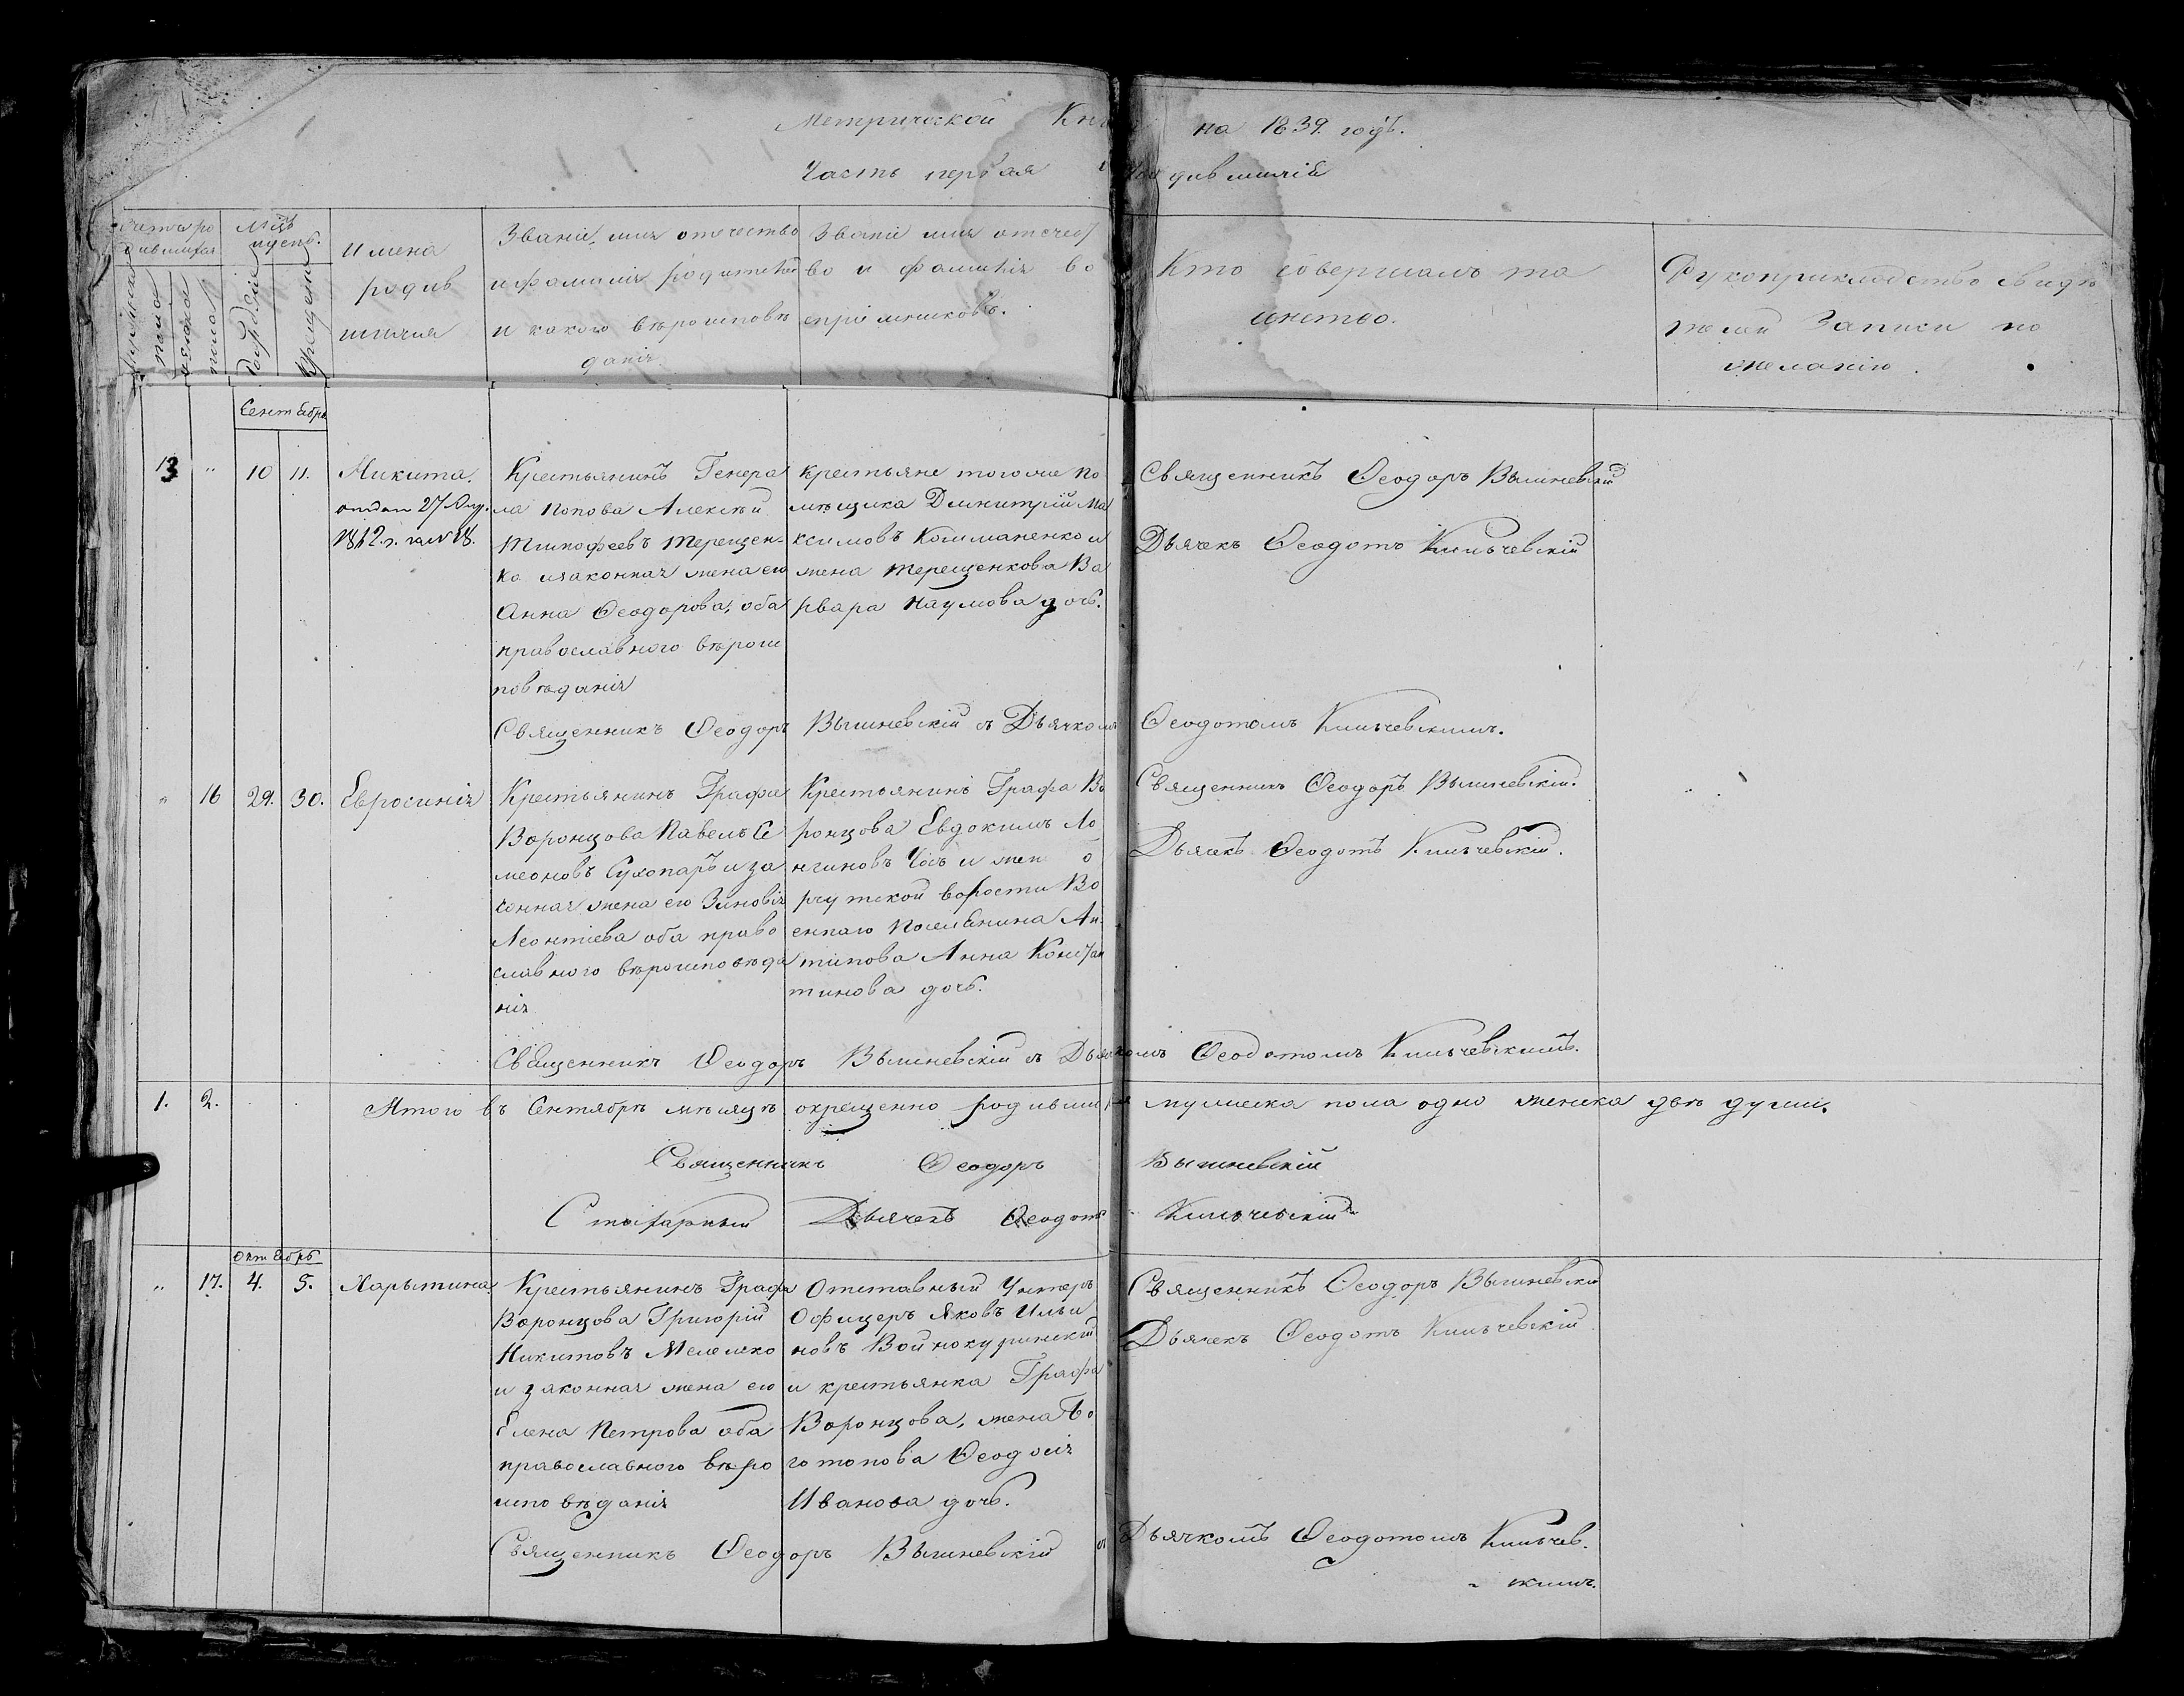 Метрической Кни на 1839. годъ.
Часть первая о родившихся
Счетъ ро
дившихся
Мужеска
пола
женска
пола
Мѣц
и день.
Рожденія
Крещенія
Имена
родив
шихся
Званіе, имя отечество
и фамилія родителей
и какого вѣроисповѣ
данія
Званіе имя отечест
во и фамилія во
спріемниковъ.
Кто совершалъ та
инство.
Рукоприкладство свидѣ
телей Записи по
желанію.
Сентябрь
13 " 10 11. Микита.
Крестьянинъ Генера
ла Попова Алексѣй
Тимофеевъ Терещен-
ко изаконная жена его
Анна Ѳеодорова, оба
православного вѣроис
повѣданія
крестьяне тогоже по
мѣщика Димитрій Ма
ксимовъ Кошманенко и
жена Терещенкова Ва
рвара Наумова дочь.
Священникъ Ѳеодоръ Вышневскій
Дьячекъ Ѳеодотъ Кильчевскій
Священникъ Ѳеодоръ Вышневскій съ Дьячкомъ Ѳеодотомъ Кильчевскимъ.
" 16 29. 30. Евросинія
Крестьянинъ Графа
Воронцова Павелъ Си
меоновъ Сухопаръ и за
конная жена его Зиновія
Леонтіева оба право
славного вѣроисповѣда
нія
Крестьянинъ Графа Во
ронцова Евдокимъ Ло
нгиновъ и жен
волости Во
еннаго Поселенина Ан
типова Анна Констан
тинова дочь.
Священникъ Ѳеодоръ Вышневскій.
Дьячекъ Ѳеодотъ Кильчевскій.
Священникъ Ѳеодоръ Вышневскій съ Дьячкомъ Ѳеодотомъ Кильчевскимъ.
1. 2. Итого въ Сентябрѣ мѣсяцѣ окрещенно родившихся мужеска пола одно женска двѣ души.
Священникъ Ѳеодоръ Вышневскій
Дьячекъ Ѳеодотъ Кильчевскій
Октябрь
" 17. 4. 5. Харытина
Крестьянинъ Графа
Воронцова Григорій
Никитовъ Мелешко
и законная жена его
Елена Петрова оба
православного вѣро
исповѣданія
Отставный Унтеръ
Офицеръ Яковъ Ильи
новъ Войнокуринскій
и крестьянка Графа
Воронцова, жена Бо
готопова Ѳеодосія
Иванова дочь.
Священникъ Ѳеодоръ Вышневскій
Дьячекъ Ѳеодотъ Кильчевскій
Священникъ Ѳеодоръ Вышневскій съ Дьячкомъ Ѳеодотомъ Кильчев.
скимъ.